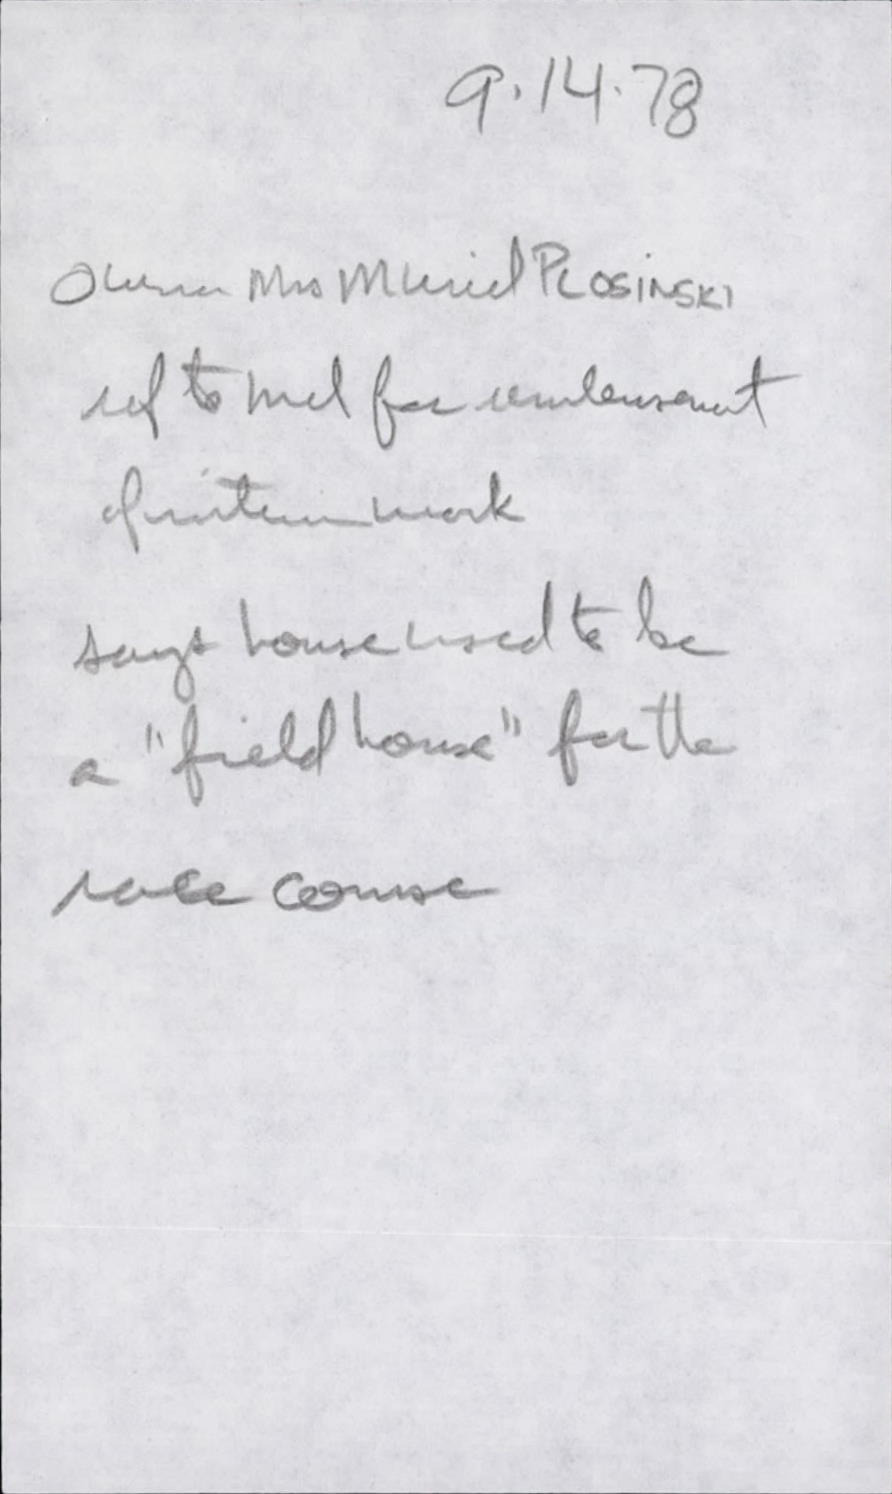 9.14.78
Owner Mrs Muriel PLOSINSKI
ref to Mel for reimbursement
of work
says house used to be
a "field house" for the
race course